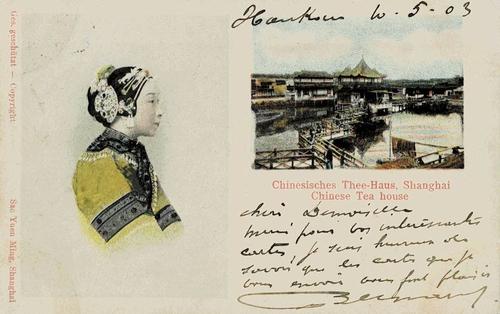 Hankow 10-5-03
Ges. geschützt — Copyright
Sze Yuen Ming, Shanghai
Chinesisches Thee-Haus, Shanghai
Chinese Tea house
cheri Demoiselle
merci pour vos intéressantes
cartes, je suis heureux de
savoir que les cartes que je
vous envois vous font plaisir